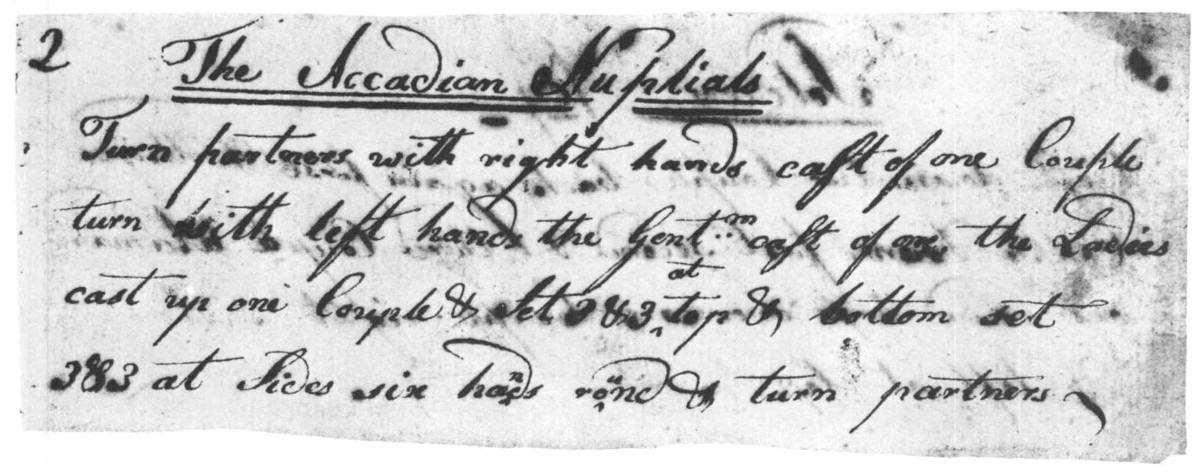 2 The Accadian Nuptials
Turn partners with right hands cast of one Couple
turn with left hands the Gent:m cast of one the Ladies
cast up one Couple & Set 3 & 3 at top & bottom set
3 & 3 at Sides six hands round & turn partners